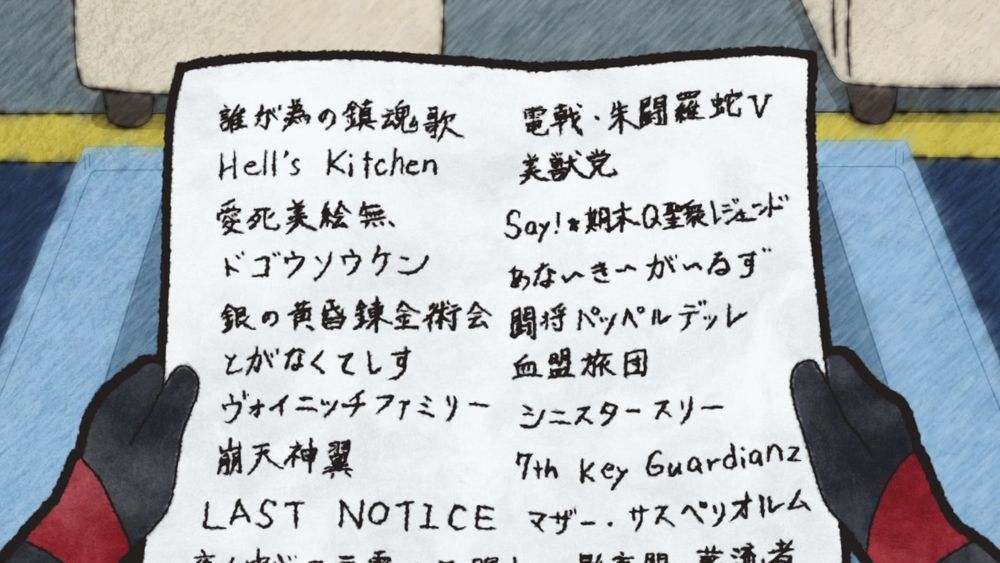 誰が為の鎮魂歌
Hell's Kitchen
愛死美絵無、
ドゴウソウケン
銀の黄昏錬金術会
とがなくてしす
ヴォイニッチファミリー
崩天神翼
LAST NOTICE
電戦・朱闘羅蛇V
美獣党
Say!★期末Q聖衆レジェンド
あないきいがいるず
闘将ペッペルデッレ
血盟旅団
シニスタースリー
7th Key Guardianz
マザー・サスペリオルム